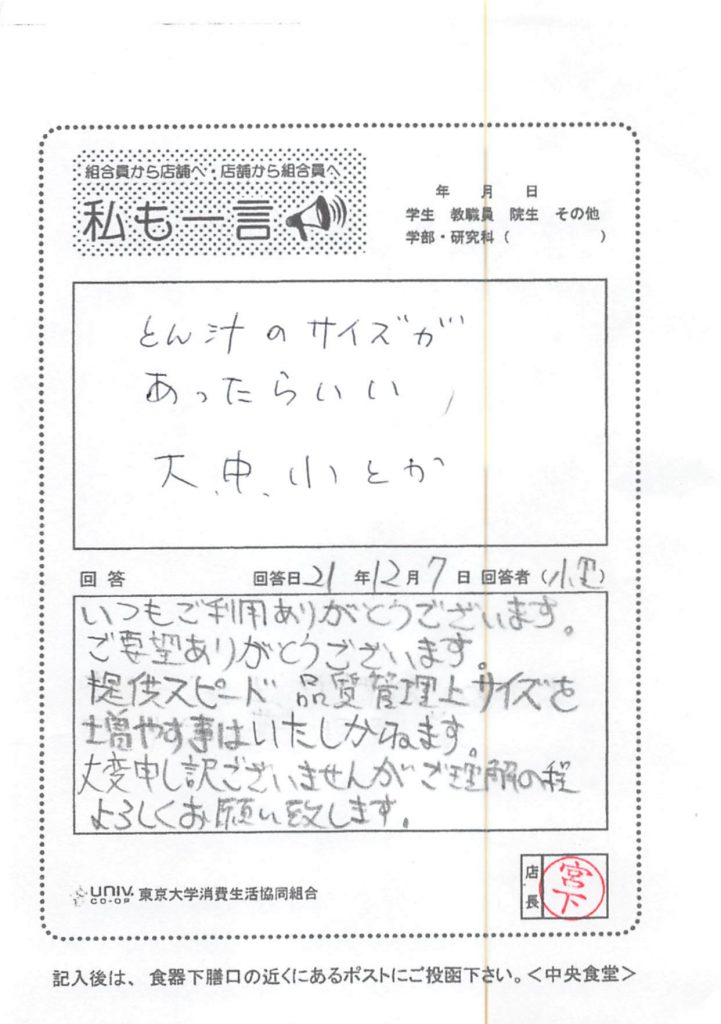 組合員から店舗へ・店舗から組合員へ
私も一言
年 月 日
学生 教職員 院生 その他
学部・研究科（ ）
とん汁のサイズが
あったらいい
大、中、小とか
回答 回答日21年12月7日 回答者（小）
いつもご利用ありがとうございます。
ご要望ありがとうございます。
提供スピード 品質管理上サイズを
増やす事はいたしかねます。
大変申し訳ございませんがご理解の程
よろしくお願い致します。
UNIV. CO-OP 東京大学消費生活協同組合
店長 宮下
記入後は、食器下膳口の近くにあるポストにご投函下さい。＜中央食堂＞